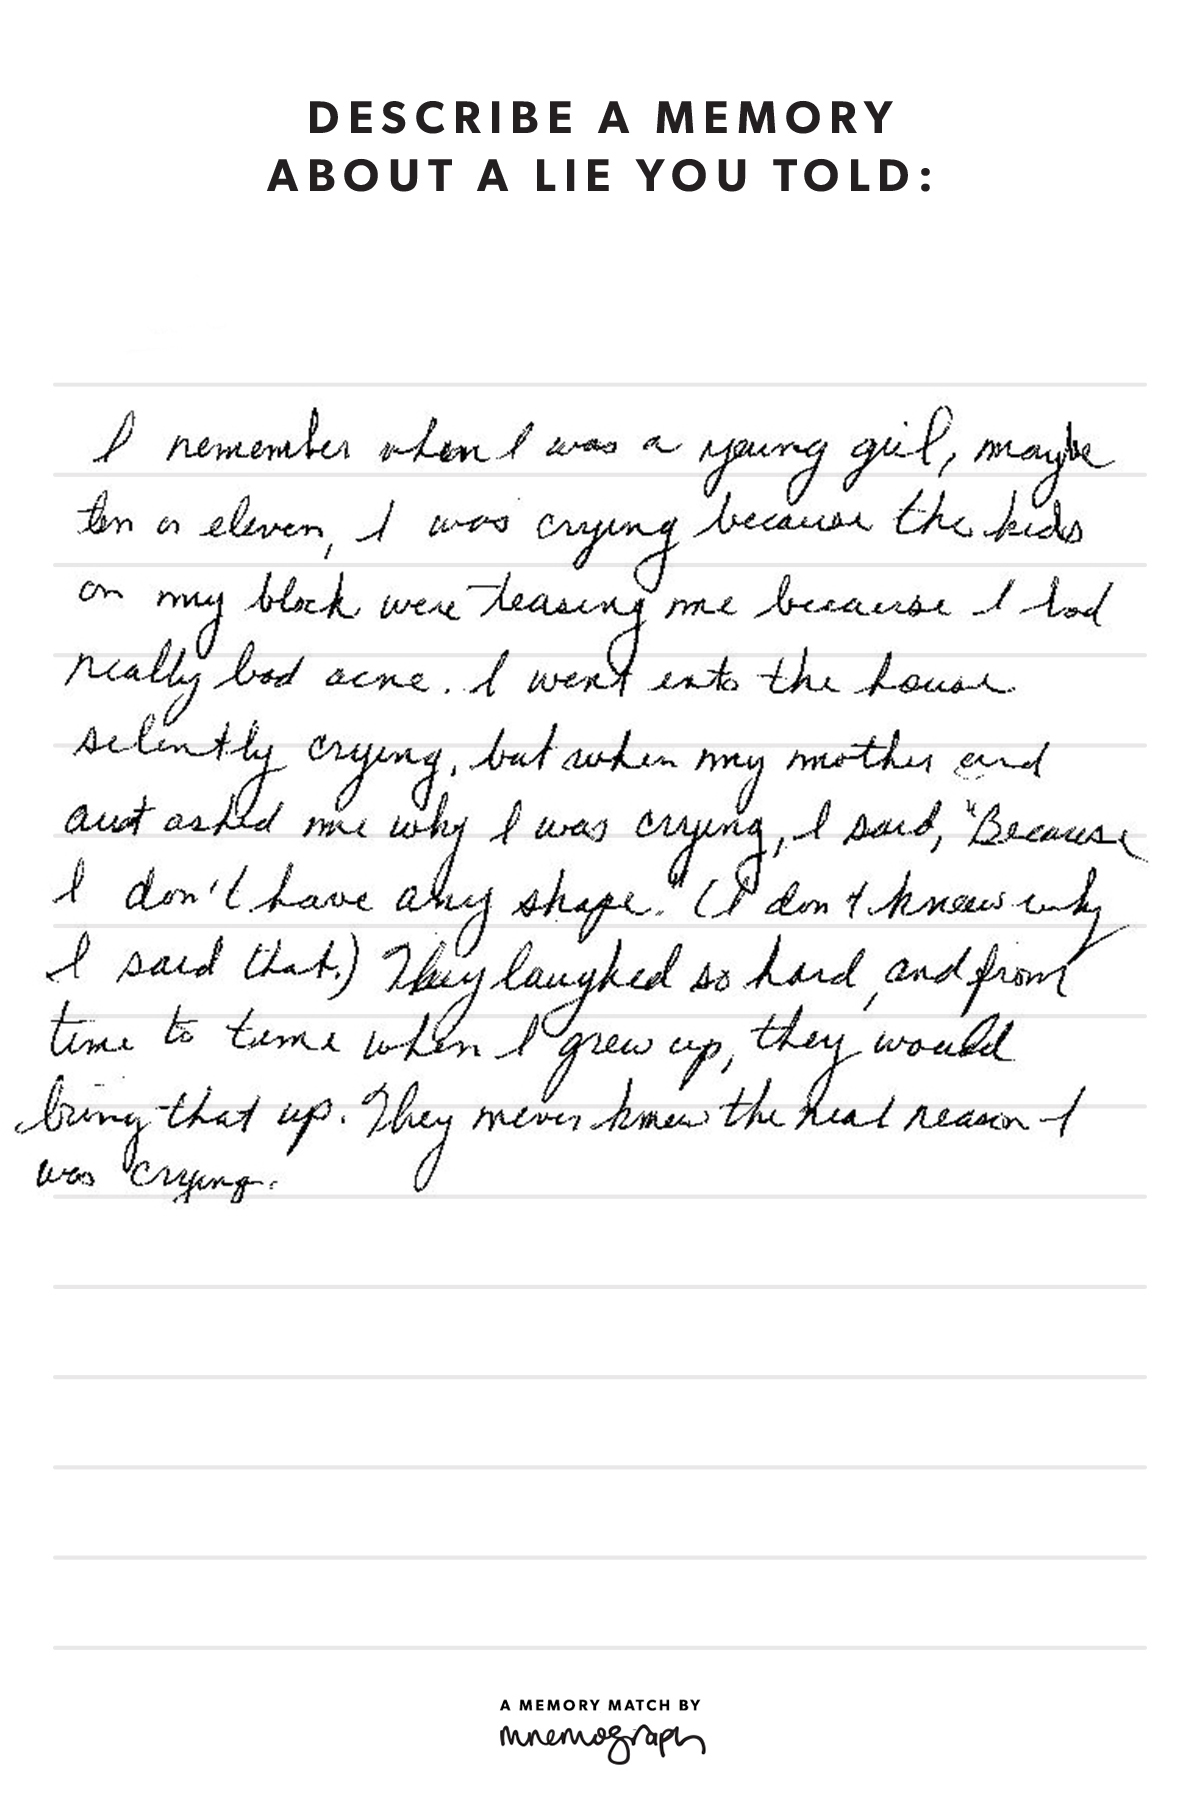 DESCRIBE A MEMORY
ABOUT A LIE YOU TOLD:
I remember when I was a young girl, maybe
ten or eleven, I was crying because the kids
on my block were teasing me because I had
really bad acne. I went into the house
silently crying, but when my mother and
aunt asked me why I was crying, I said, "Because
I don't have any shape." (I don't know why
I said that.) They laughed so hard, and from
time to time when I grew up, they would
bring that up. They never knew the real reason I
was crying.
A MEMORY MATCH BY
mnemograph